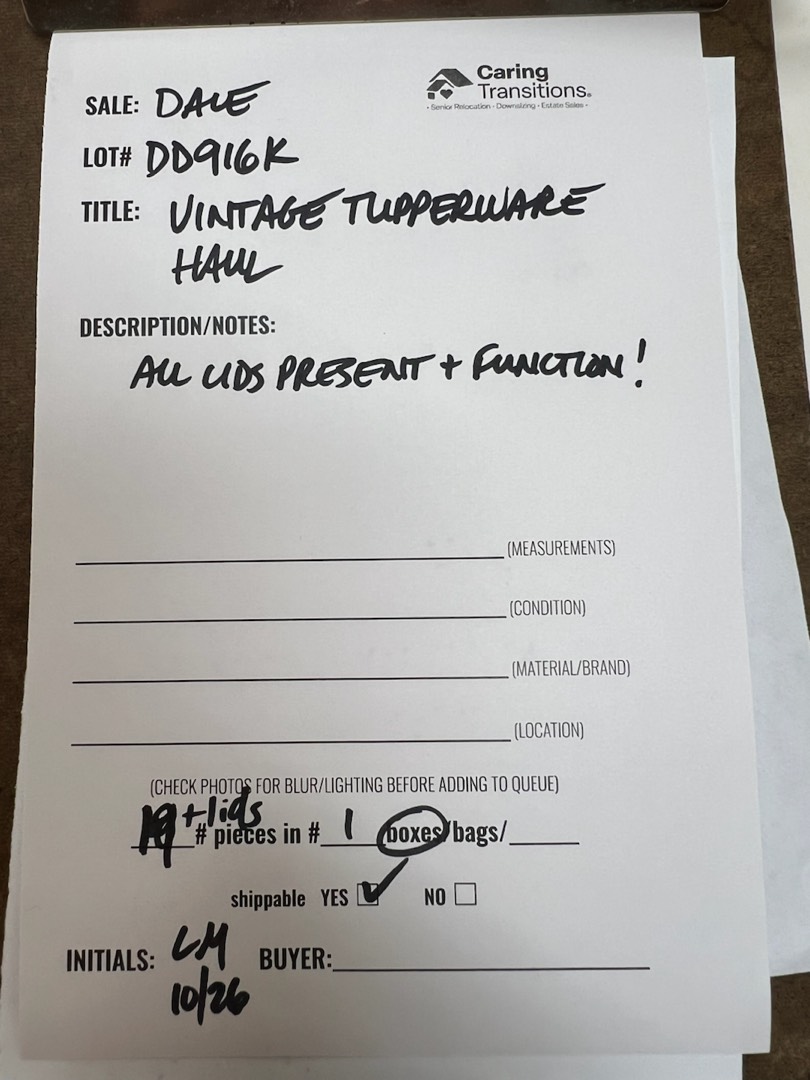 Caring
Transitions®
• Senior Relocation • Downsizing • Estate Sales •
SALE: DALE
LOT# DD916K
TITLE: VINTAGE TUPPERWARE
HAUL
DESCRIPTION/NOTES:
ALL LIDS PRESENT + FUNCTION!
(MEASUREMENTS)
(CONDITION)
(MATERIAL/BRAND)
(LOCATION)
(CHECK PHOTOS FOR BLUR/LIGHTING BEFORE ADDING TO QUEUE)
+lids
# pieces in # 1 boxes/bags/
shippable YES NO
INITIALS: LM BUYER:
10/26